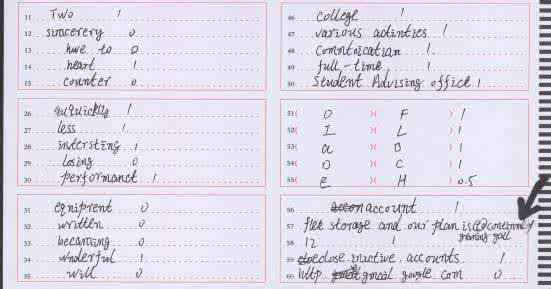 11 Two 1
12 sincerery 0
13 hwe to 0
14 heart 1
15 counter 0
26 quickly 1
27 less 1
28 intersting 1
29 losing 0
30 performanct 1
31 equiprent 0
32 written 0
33 becanting 0
34 wnderful 1
35 will 0
46 college 1
47 various activities 1
48 commication 1
49 full-time 1
50 Student Advising office 1
51( O )( F ) 1
52( I )( L ) 1
53( a )( B ) 1
54( D )( C ) 1
55( E )( H ) 0.5
56 account 1
57 storage and our plan is
58 12 1
59 close inactive accounts 1
60 http gmeal google com 0